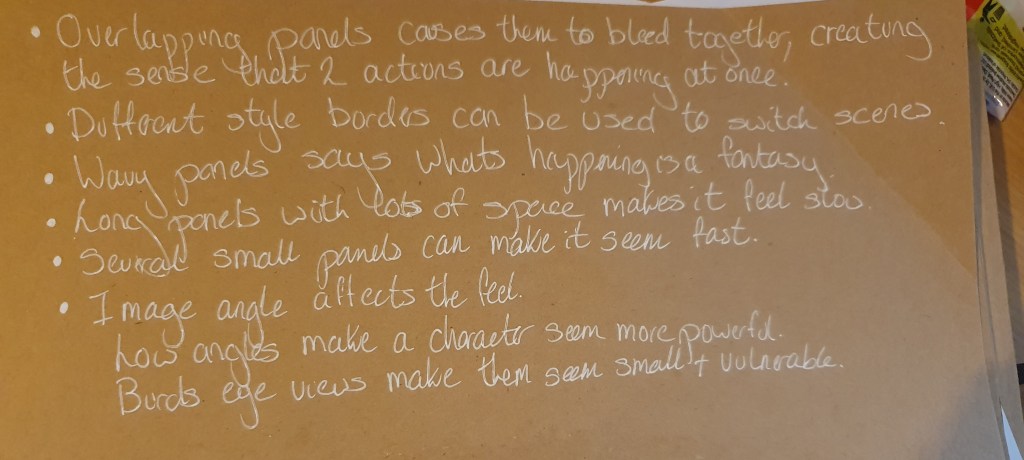 • Overlapping panels cases them to bleed together, creating
the sense that 2 actions are happening at once.
• Different style borders can be used to switch scenes.
• Wavy panels says whats happening is a fantasy.
• Long panels with lots of space makes it feel slow.
• Several small panels can make it seem fast.
• Image angle affects the feel.
Low angles make a character seem more powerful.
Birds eye views make them seem small + vulnerable.